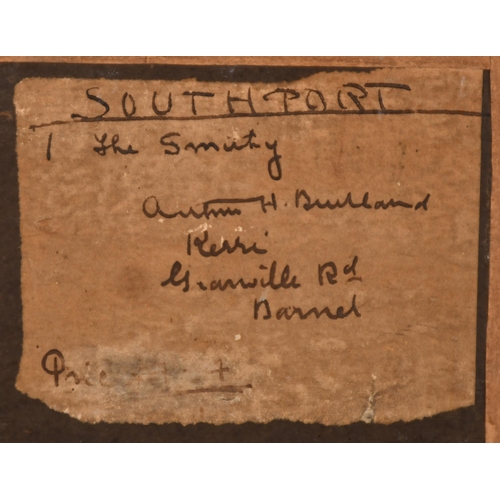 SOUTHPORT
1 The Smithy
Arthur H. Buckland
Kerri
Granville Rd
Barnet
Price